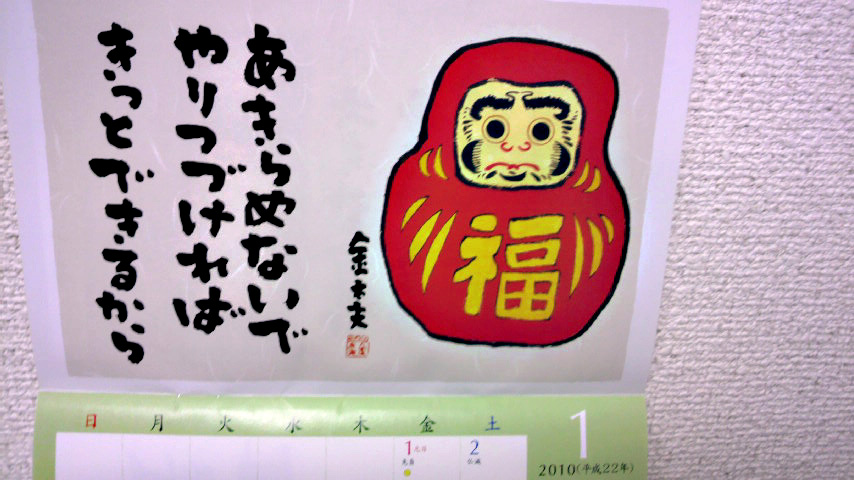 あきらめないで
やりつづければ
きっとできるから
福
日 月 火 水 木 金 土
1 元日
先負
2
仏滅
1
2010(平成22年)